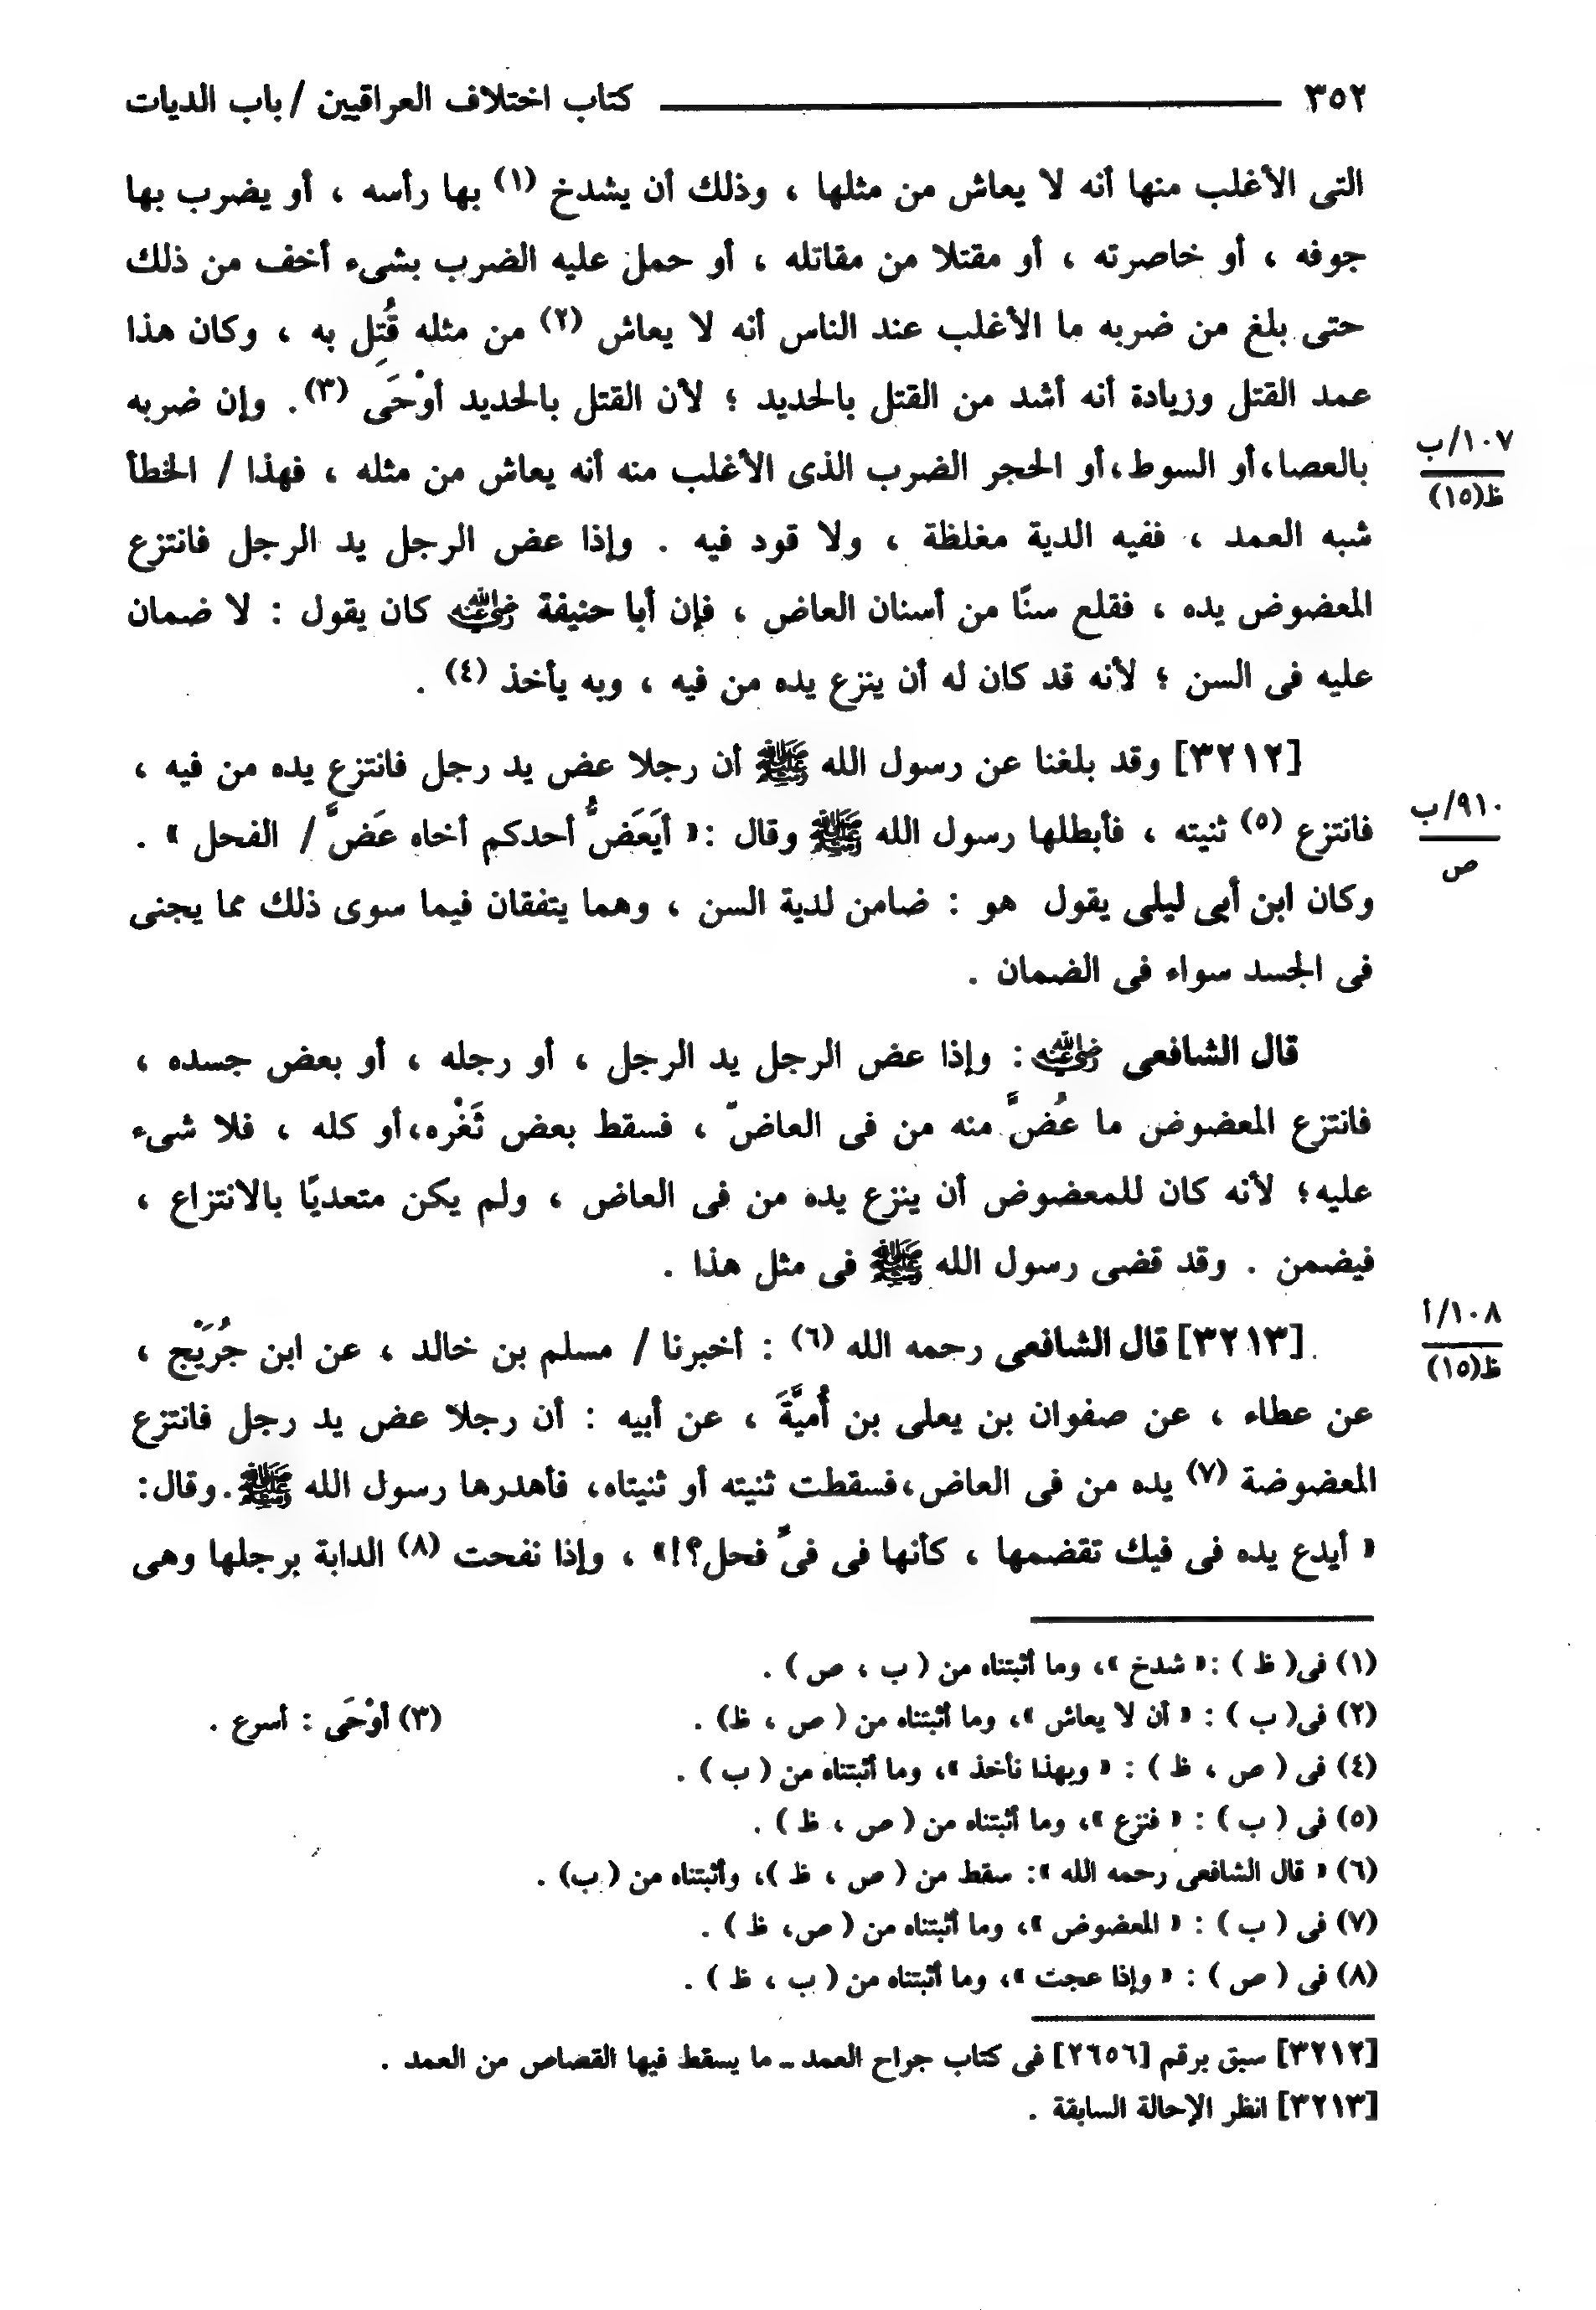 ٣٥٢ كتاب اختلاف العراقيين / باب الديات
التى الأغلب منها أنه لا يعاش من مثلها ، وذلك أن يشدخ (١) بها رأسه ، أو يضرب بها
جوفه ، أو خاصرته ، أو مقتلا من مقاتله ، أو حمل عليه الضرب بشىء أخف من ذلك
حتى بلغ من ضربه ما الأغلب عند الناس أنه لا يعاش (٢) من مثله قُتِل به ، وكان هذا
عمد القتل وزيادة أنه أشد من القتل بالحديد ؛ لأن القتل بالحديد أوْحَى (٣). وإن ضربه
بالعصا،أو السوط،أو الحجر الضرب الذى الأغلب منه أنه يعاش من مثله ، فهذا / الخطأ
١٠٧/ب
ظ(١٥)
شبه العمد ، ففيه الدية مغلظة ، ولا قود فيه . وإذا عض الرجل يد الرجل فانتزع
المعضوض يده ، فقلع سنًا من أسنان العاض ، فإن أبا حنيفة رضي الله عنه كان يقول : لا ضمان
عليه فى السن ؛ لأنه قد كان له أن ينزع يده من فيه ، وبه يأخذ (٤) .
[٣٢١٢] وقد بلغنا عن رسول الله ﷺ أن رجلا عض يد رجل فانتزع يده من فيه ،
فانتزع (٥) ثنيته ، فأبطلها رسول الله ﷺ وقال :« أيَعَضُّ أحدكم أخاه عَضَّ / الفحل » .
٩١٠/ب
ص
وكان ابن أبى ليلى يقول هو : ضامن لدية السن ، وهما يتفقان فيما سوى ذلك مما يجنى
فى الجسد سواء فى الضمان .
قال الشافعى رضي الله عنه : وإذا عض الرجل يد الرجل ، أو رجله ، أو بعض جسده ،
فانتزع المعضوض ما عُضَّ منه من فى العاضّ ، فسقط بعض ثَغْره،أو كله ، فلا شىء
عليه؛ لأنه كان للمعضوض أن ينزع يده من فى العاض ، ولم يكن متعديًا بالانتزاع ،
فيضمن . وقد قضى رسول الله ﷺ فى مثل هذا .
[٣٢١٣] قال الشافعى رحمه الله (٦) : أخبرنا / مسلم بن خالد ، عن ابن جُرَيْج ،
١٠٨/أ
ظ(١٥)
عن عطاء ، عن صفوان بن يعلى بن أُميَّةَ ، عن أبيه : أن رجلا عض يد رجل فانتزع
المعضوضة (٧) يده من فى العاض،فسقطت ثنيته أو ثنيتاه، فأهدرها رسول الله ﷺ.وقال:
« أيدع يده فى فيك تقضمها ، كأنها فى فىِّ فحل؟!» ، وإذا نفحت (٨) الدابة برجلها وهى
(١) فى( ظ ) :« شدخ »، وما أثبتناه من ( ب ، ص ) .
(٢) فى( ب ) : « أن لا يعاش »، وما أثبتناه من ( ص ، ظ) . (٣) أوْحَى : أسرع .
(٤) فى ( ص ، ظ ) : « وبهذا نأخذ »، وما أثبتناه من ( ب ) .
(٥) فى ( ب ) : « فنزع »، وما أثبتناه من ( ص ، ظ ) .
(٦) « قال الشافعى رحمه الله »: سقط من ( ص ، ظ )، وأثبتناه من ( ب) .
(٧) فى ( ب ) : « المعضوض »، وما أثبتناه من ( ص، ظ ) .
(٨) فى ( ص ) : « وإذا عجت »، وما أثبتناه من ( ب ، ظ ) .
[٣٢١٢] سبق برقم [٢٦٥٦] فى كتاب جراح العمد ـ ما يسقط فيها القصاص من العمد .
[٣٢١٣] انظر الإحالة السابقة .